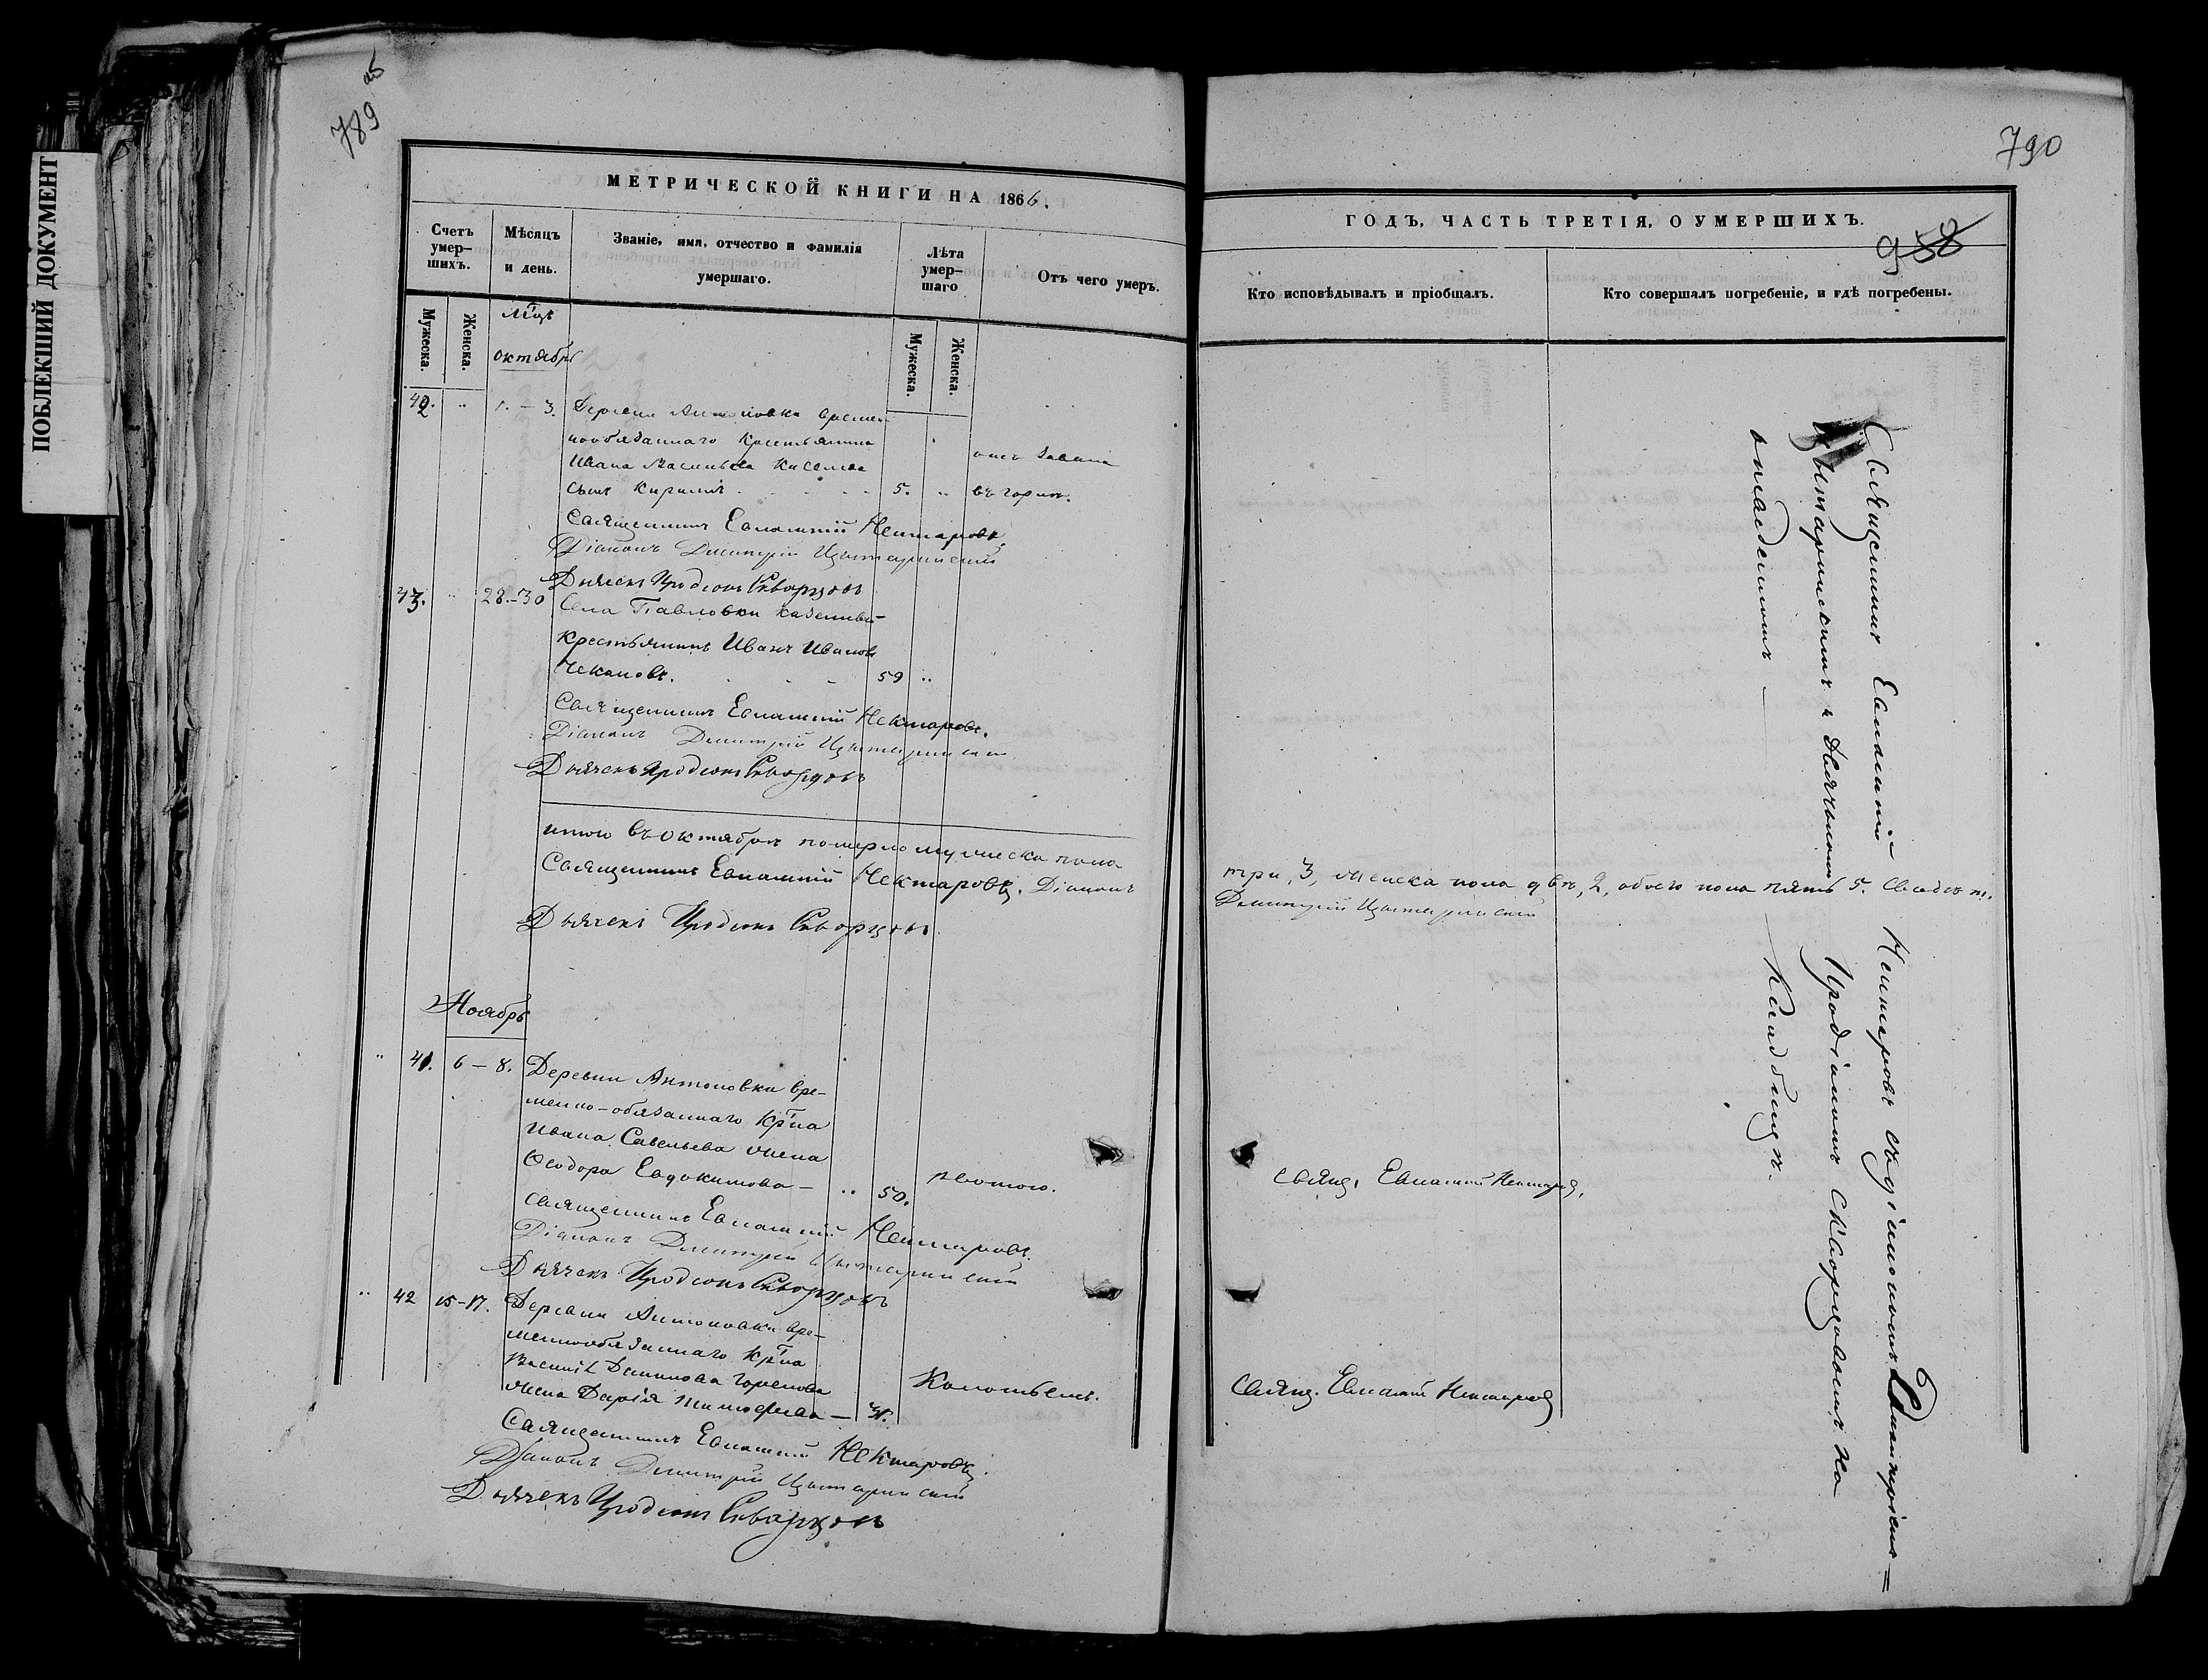 ПОБЛЕКШИЙ ДОКУМЕНТ
789
об
МЕТРИЧЕСКОЙ КНИГИ НА 1866.
Счетъ умер-шихъ.
Мѣсяцъ и день.
Званіе, имя, отчество и фамилія умершаго.
Лѣта умер-шаго
Отъ чего умеръ.
Мужеска.
Женска.
Мужеска.
Женска.
Мцъ
октябрь
42. 1. – 3. Деревни Антоновки времен-
нообязаннаго крестьянина
Ивана Васильева Киселева
сынъ Кириллъ 5.
въ горлѣ.
Священникъ Евлампій Нектаровъ.
Діаконъ Димитрій Цытаринскій
Дьячекъ Иродіонъ Скворцовъ
43. 28.–30 Села Павловки казенный
крестьянинъ Иванъ Ивановъ
Чекановъ. 59
Священникъ Евлампій Нектаровъ.
Діаконъ Димитрій Цытаринскій
Дьячекъ Иродіонъ Скворцовъ
итого въ октябрѣ померло мужеска пола
Священникъ Евлампій Нектаровъ. Діаконъ
Дьячекъ Иродіонъ Скворцовъ.
Ноябрь
41. 6 – 8. Деревни Антоновки вре-
менно-обязаннаго кр-на
Ивана Савельева жена
Ѳеодора Евдокимова – 50.
рвотою.
Священникъ Евлампій Нектаровъ.
Діаконъ Димитрій Цытаринскій
Дьячекъ Иродіонъ Скворцовъ
42 15–17. Деревни Антоновки вре-
меннообязаннаго кр-на
Василія Данилова Горелова
жена Дарія Тимофеева –
Колотьемъ.
Священникъ Евлампій Нектаровъ.
Діаконъ Димитрій Цытаринскій
Дьячекъ Иродіонъ Скворцовъ
790
ГОДЪ, ЧАСТЬ ТРЕТІЯ, О УМЕРШИХЪ.
958
Кто исповѣдывалъ и пріобщалъ.
Кто совершалъ погребеніе, и гдѣ погребены.
три, 3, женска пола двѣ, 2, обоего пола пять 5.
Димитрій Цытаринскій
Свящ. Евлампій Нектаровъ.
Свящ. Евлампій Нектаровъ
Священникъ Евлампій Нектаровъ съ діакономъ Димитріемъ=
Цытаринскимъ и дьячкомъ Иродіономъ Скворцовымъ на
кладбищѣ.